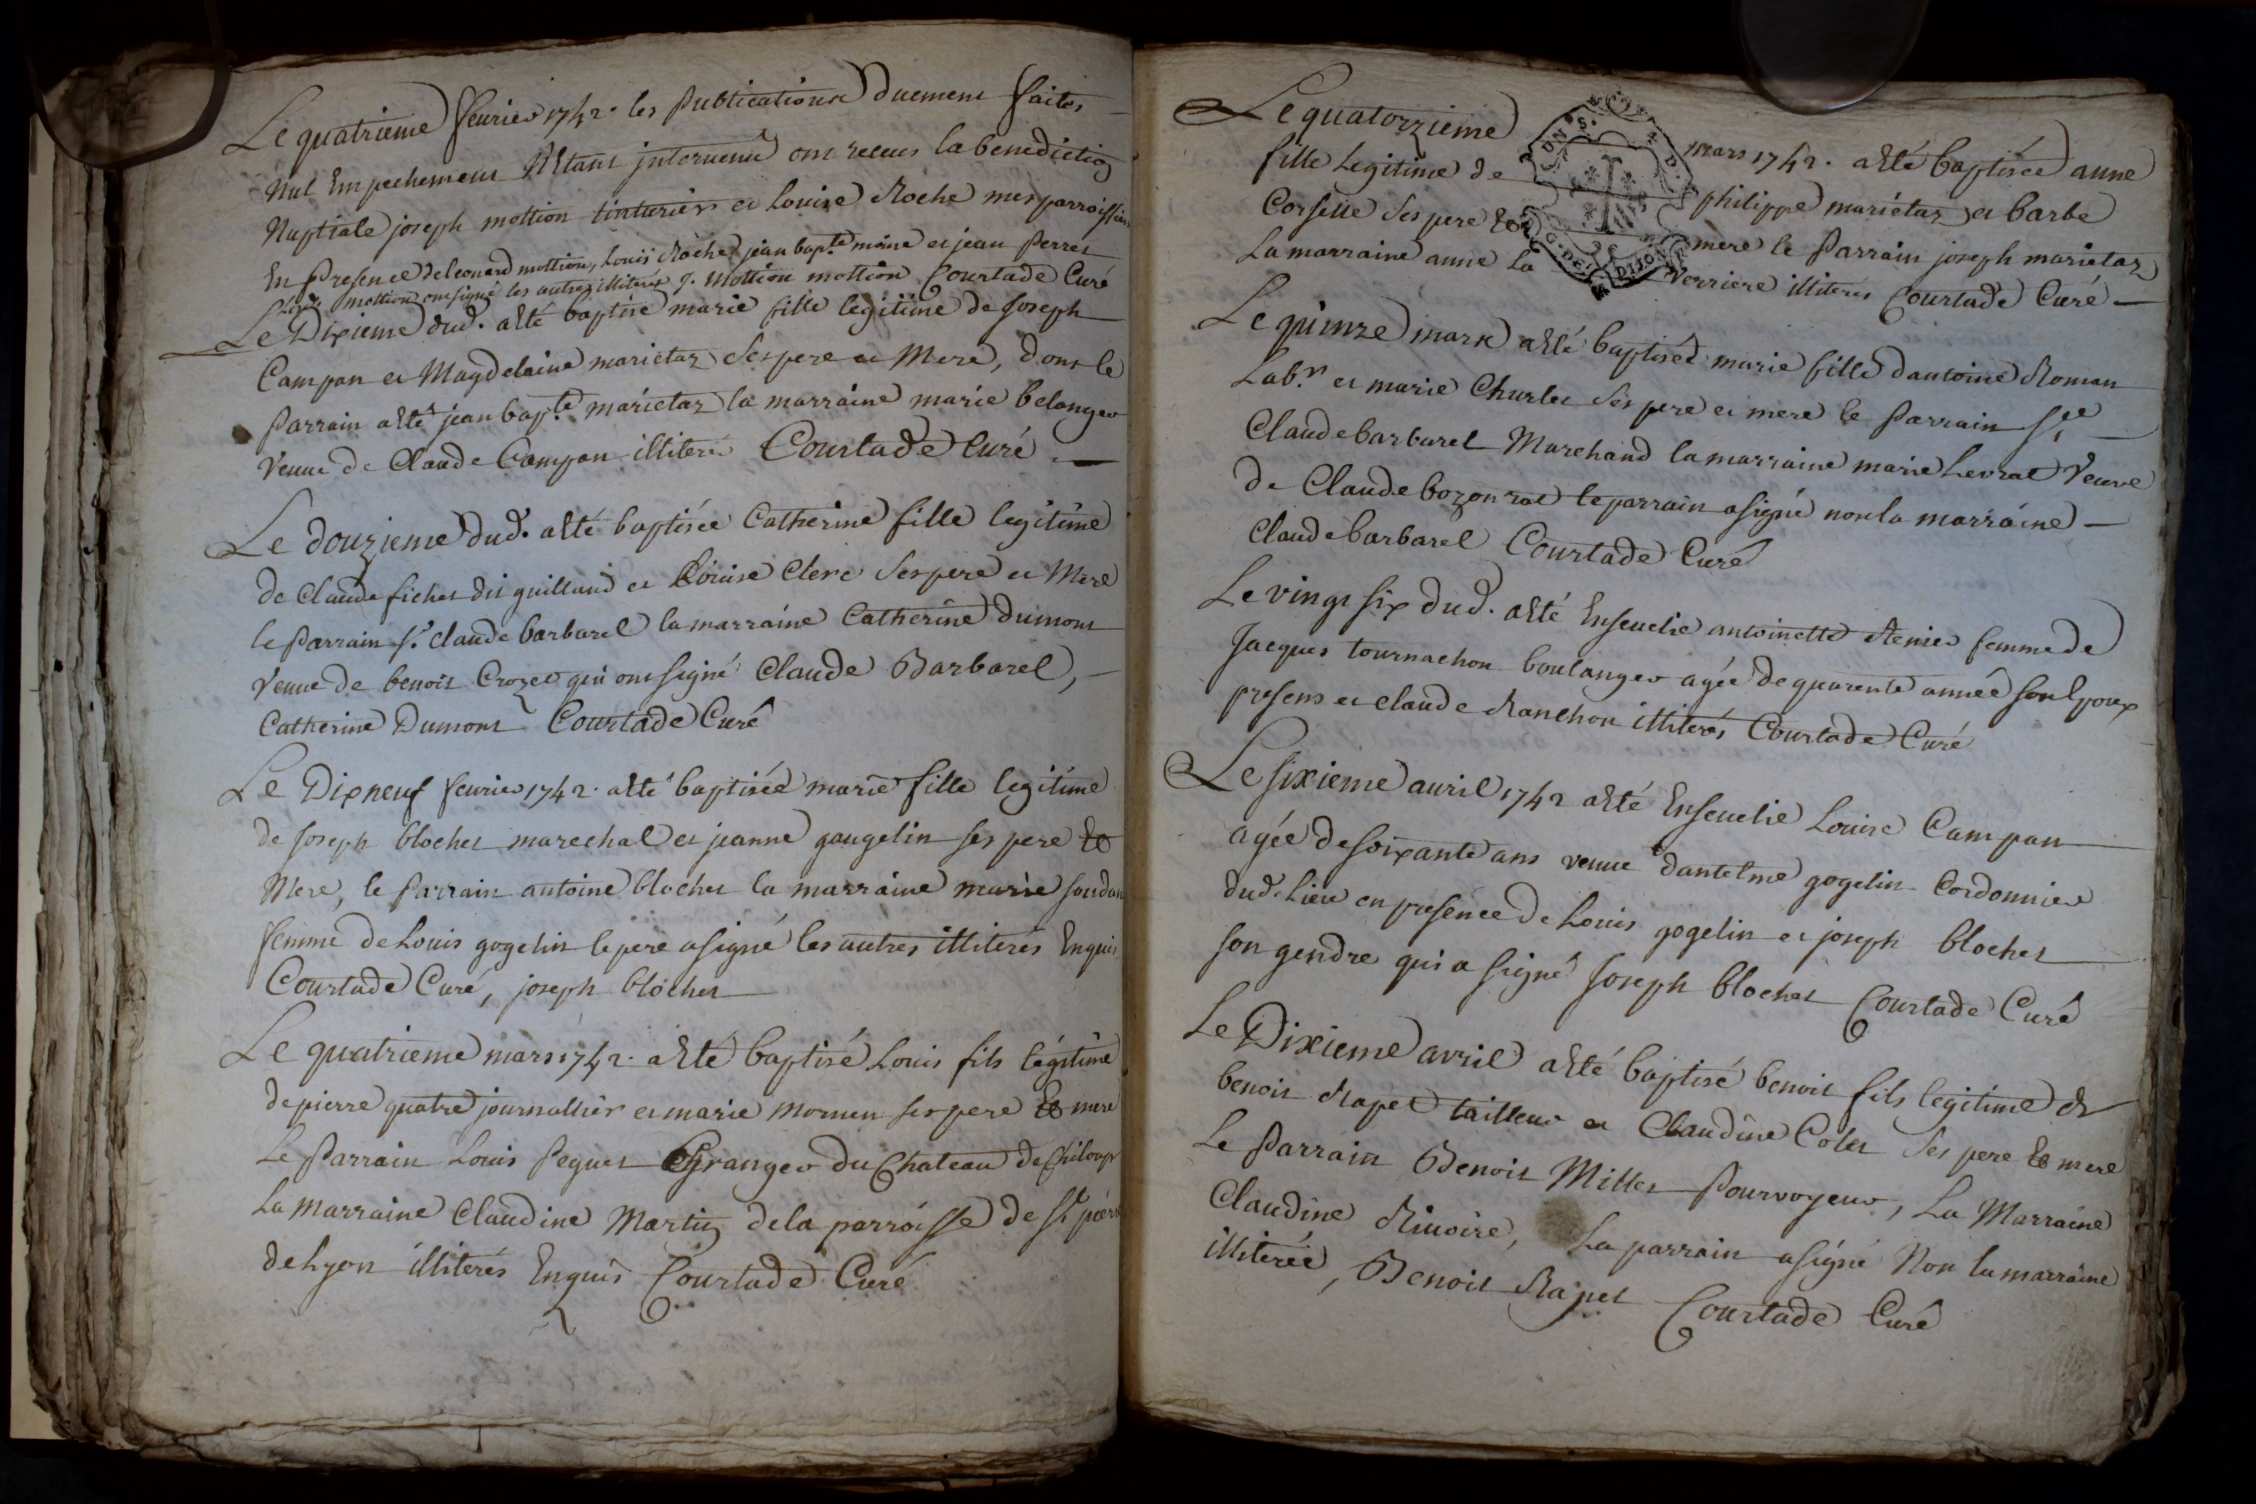 Le quatrieme feurier 1742. les Publications duement faites
Nul Empechement Nétant jnteruenu ont receus la benediction
Nuptiale joseph mottion tinturier et Louise Roche mes parroissiens
En Presence de leonard mottion, Louis Roche jean bapte moine et jean Perret
mottion ont signé les autres illiterés J. Mottion mottion Courtade Curé
Le Dixieme dud. a été baptisé marie fille legitime de Joseph
Campan et Magdelaine marietaz Ses pere et Mere, dont le
Parrain a été jean bapte marietaz la marraine marie belanger
Veuue de Claude Campan illiterés Courtade Curé
Le douzieme dud. a été baptisée Catherine fille legitime
de Claude fichet dit guilland et Louise Clerc Ses pere et Mere
le Parrain sr. claude barbarel la marraine Catherine Dumont
Veuue de benoit Crozer qui ont signé Claude Barbarel,
Catherine Dumont Courtade Curé
Le Dixneuf feurier 1742. a été baptisée marie fille legitime
de Joseph blochet marechal et jeanne gaugelin ses pere et
Mere, le Parrain antoine blochet la marraine marie
femme de Louis gogelin le pere a signé les autres illiterés Enquis
Courtade Curé, joseph blochet
Le quatrieme mars 1742. a été baptisé Louis fils légitime
de pierre quatre journallier et marie Mornen ses pere et mere
Le Parrain Louis Peguet Granger du Chateau de Chiloup
La Marraine Claudine Martin de la parroisse de St pierre
de Lyon illiterés Enquis Courtade Curé
Le quatorzieme mars 1742. a été baptisée anne
fille Legitime de philippe marietaz et barbe
Corselle Ses pere et mere le Parrain joseph marietaz
La marraine anne La Verriere illiterés Courtade Curé
G. DE DIJON
Le quinze mars a été baptisée marie fille d'antoine Roman
Labr. et marie Charlet Ses pere et mere le Parrain Sr
Claude barbarel Marchand la marraine marie Levrat Veuve
de Claude bozonrat le parrain a signé non la marraine
Claude barbarel Courtade Curé
Le vingt six dud. a été Enseuelie antoinette femme de
Jacques tournachon boulanger agée de quarente année son Epoux
present et claude Ranchon illiterés Courtade Curé
Le sixieme auril 1742 a été Enseuelie Louise Campan
agée de soixante ans veuue d'antelme gogelin Cordonnier
dud. Lieu en presence de Louis gogelin et joseph blochet
son gendre qui a signé Joseph blochet Courtade Curé
Le Dixieme avril a été baptisé benoit fils legitime de
benoit Rapet tailleur et Claudine Colet Ses pere et mere
Le Parrain Benoit Millet Pourvoyeur, La Marraine
Claudine Riuoire, La parrain a signé Non la marraine
illiterée, Benoit Rapet Courtade Curé